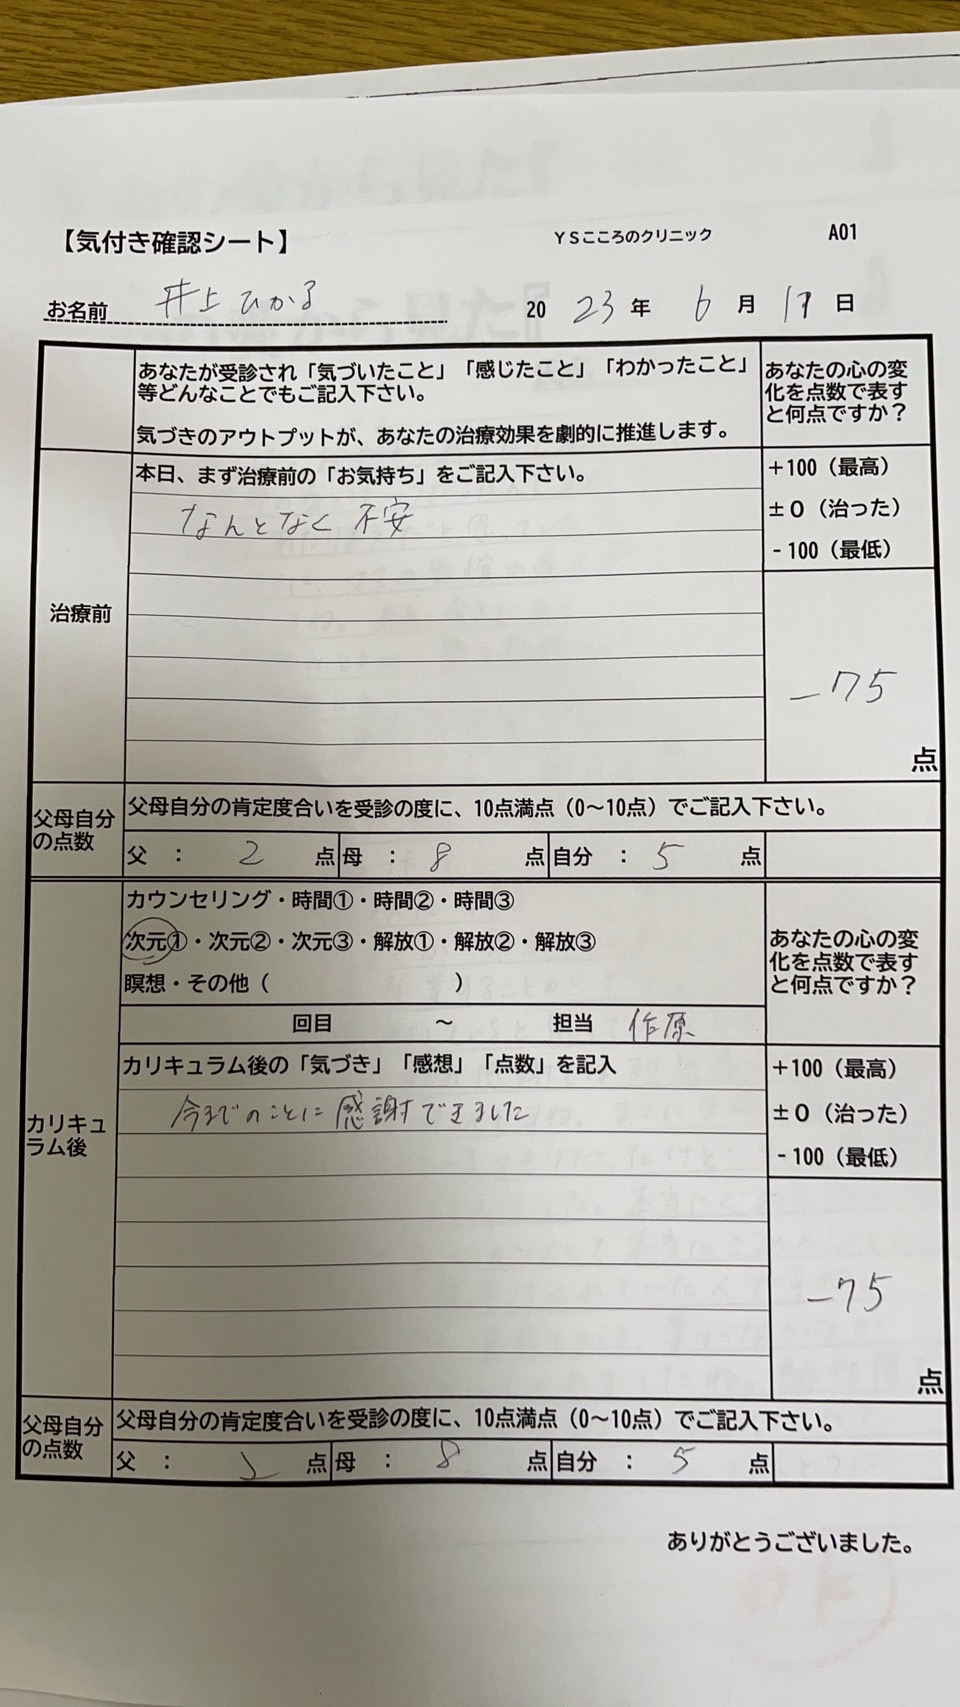 【気付き確認シート】 YSこころのクリニック A01
お名前 井上ひかる 2023年 6月 19日
あなたが受診され「気づいたこと」「感じたこと」「わかったこと」
等どんなことでもご記入下さい。
気づきのアウトプットが、あなたの治療効果を劇的に推進します。
あなたの心の変
化を点数で表す
と何点ですか？
治療前
本日、まず治療前の「お気持ち」をご記入下さい。
なんとなく不安
+100（最高）
±0（治った）
-100（最低）
-75
点
父母自分
の点数
父母自分の肯定度合いを受診の度に、10点満点（0～10点）でご記入下さい。
父 ： 2 点 母 ： 8 点 自分 ： 5 点
カリキュ
ラム後
カウンセリング・時間①・時間②・時間③
次元①・次元②・次元③・解放①・解放②・解放③
瞑想・その他（ ）
あなたの心の変
化を点数で表す
と何点ですか？
回目 ～ 担当 作原
カリキュラム後の「気づき」「感想」「点数」を記入
今までのことに感謝できました
+100（最高）
±0（治った）
-100（最低）
-75
点
父母自分
の点数
父母自分の肯定度合いを受診の度に、10点満点（0～10点）でご記入下さい。
父 ： 2 点 母 ： 8 点 自分 ： 5 点
ありがとうございました。